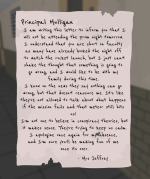 Principal Mulligan
I am writing this letter to inform you that I
will not be attending the prom night tomorrow.
I understand that you are short on faculty
as many have already booked the night off
to watch the rocket launch, but I just can't
shake the thought that something is going to
go wrong, and I would like to be with my
family during this time.
I know on the news they say nothing can go
wrong, but that doesn't reassure me. It's like
they're not allowed to talk about what happens
if the mission fails and that matter still hits
us!
I'm not one to believe in conspiracy theories, but
it makes sense. They're trying to keep us calm.
I apologize once again for
and I'm sure you'll be making fun of me
once it's over.
- Mrs Jeffrey